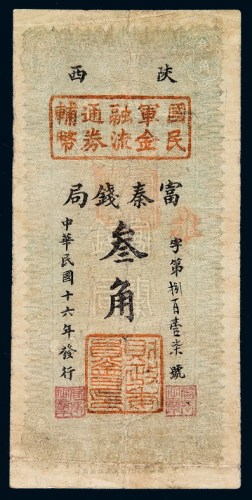 陝西
國民
軍金
融流
通券
輔幣
富秦錢局
叁角
字第捌百壹柒號
中華民國十六年發行